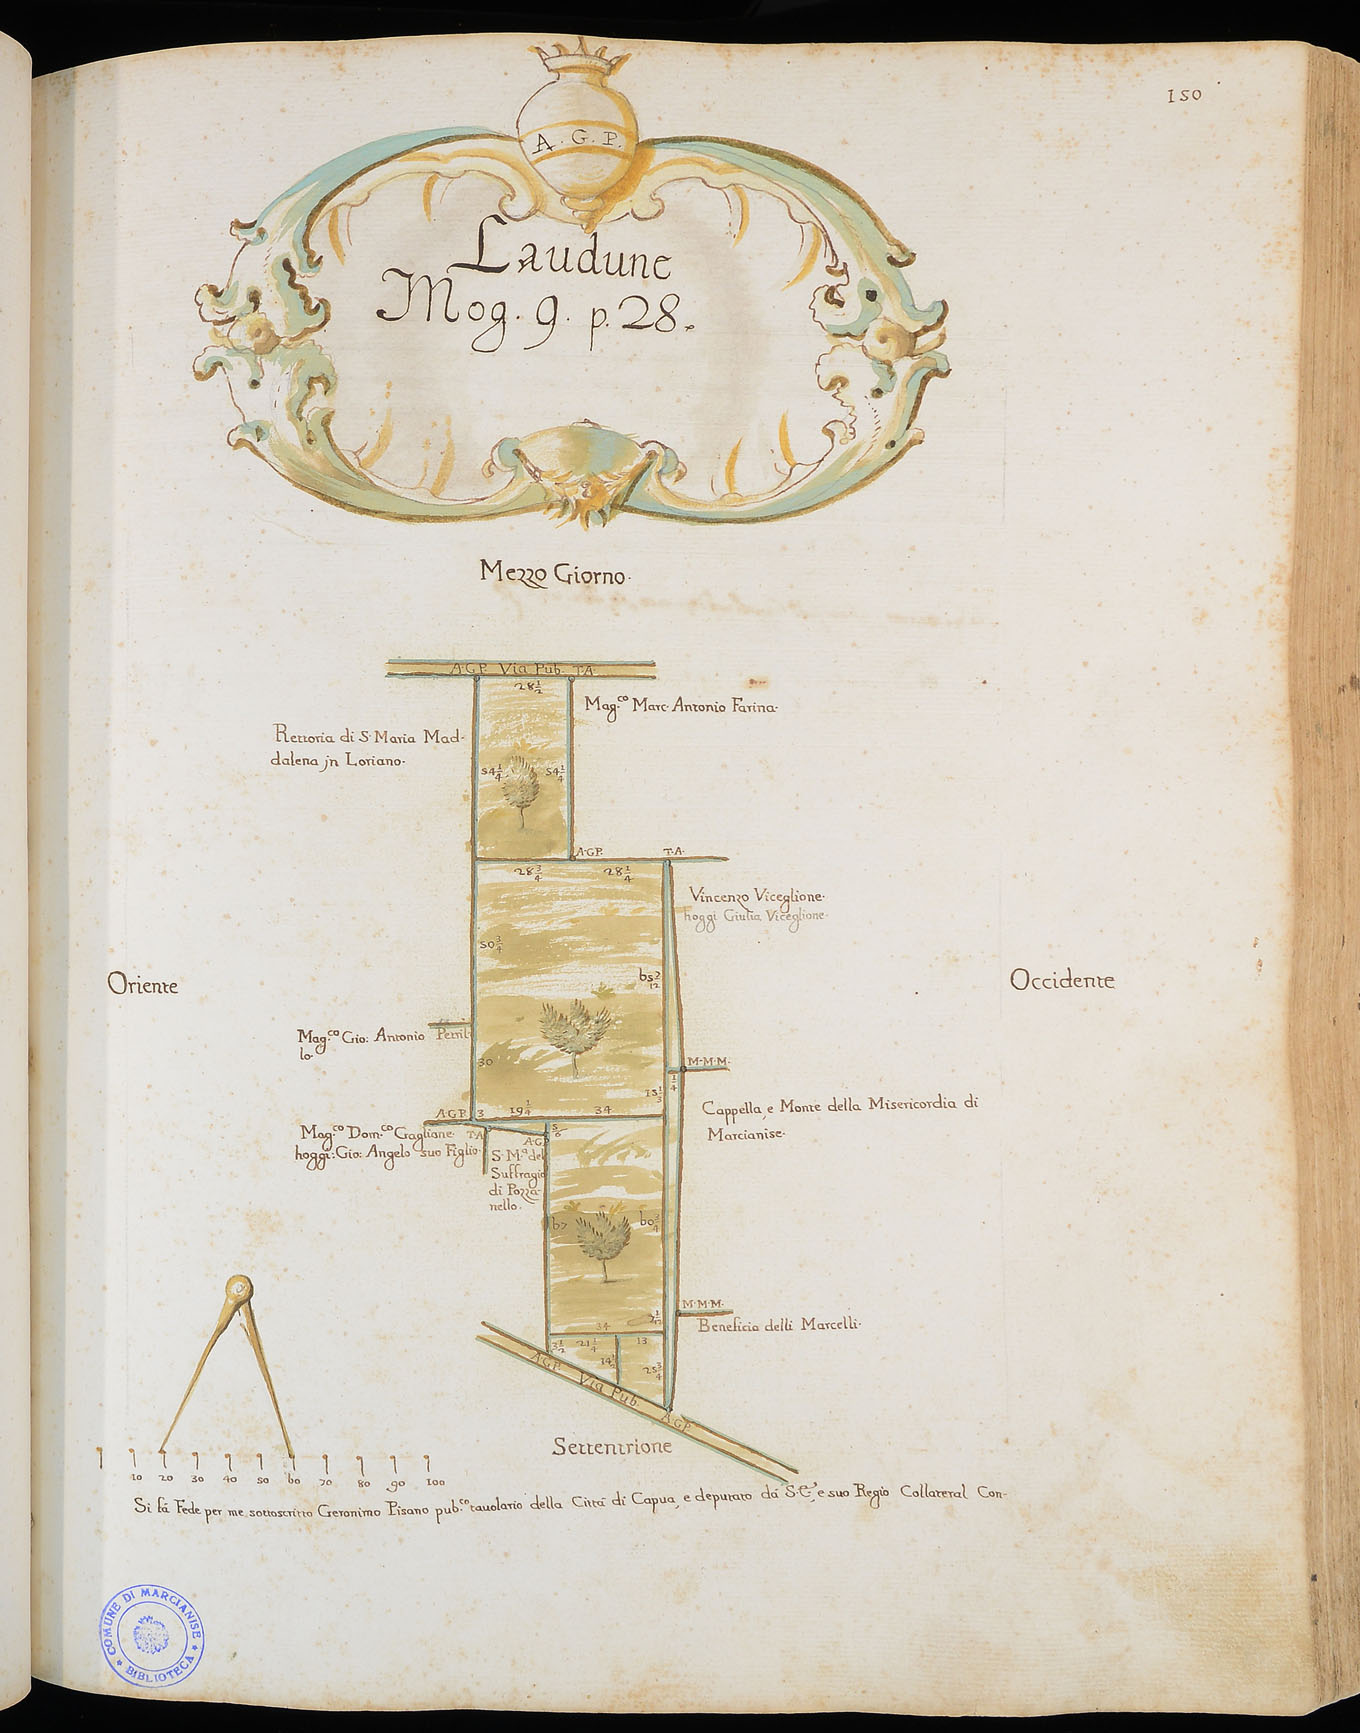 150
A. G. P.
Laudune
Mog. 9. p. 28.
Mezzo Giorno.
A.G.P. Via Pub. T.A.
28 1/2
Mag.co Marc. Antonio Farina.
Rettoria di S. Maria Mad-
dalena jn Loriano.
54 1/4 54 1/4
A.G.P. T.A.
28 3/4 28 1/4
Vincenzo Viceglione.
hoggi Giulia Viceglione.
50 3/4
b5 2/12
Oriente
Occidente
Mag.co Gio: Antonio Perril-
lo.
30
M.M.M.
1/4
15 1/3
Cappella, e Monte della Misericordia di
Marcianise.
A.G.P. 3 19 1/4 34
Mag.co Dom.co Gaglione. T.A.
hoggi: Gio: Angelo suo Figlio.
5/6
A.G.
S. M.a del
Suffragio
di Pozza-
nello.
b7 b0 3/4
M.M.M.
Beneficio delli Marcelli.
34
3 1/2 21 1/4 13
14 1/2 25 3/4
A.G.P. Via Pub. A.G.P.
Settentrione
10 20 30 40 50 b0 70 80 90 100
Si fà Fede per me sottoscritto Geronimo Pisano pub.co tauolario della Città di Capua, e deputato da S.E., e suo Regio Collateral Con-
COMUNE DI MARCIANISE
* BIBLIOTECA *